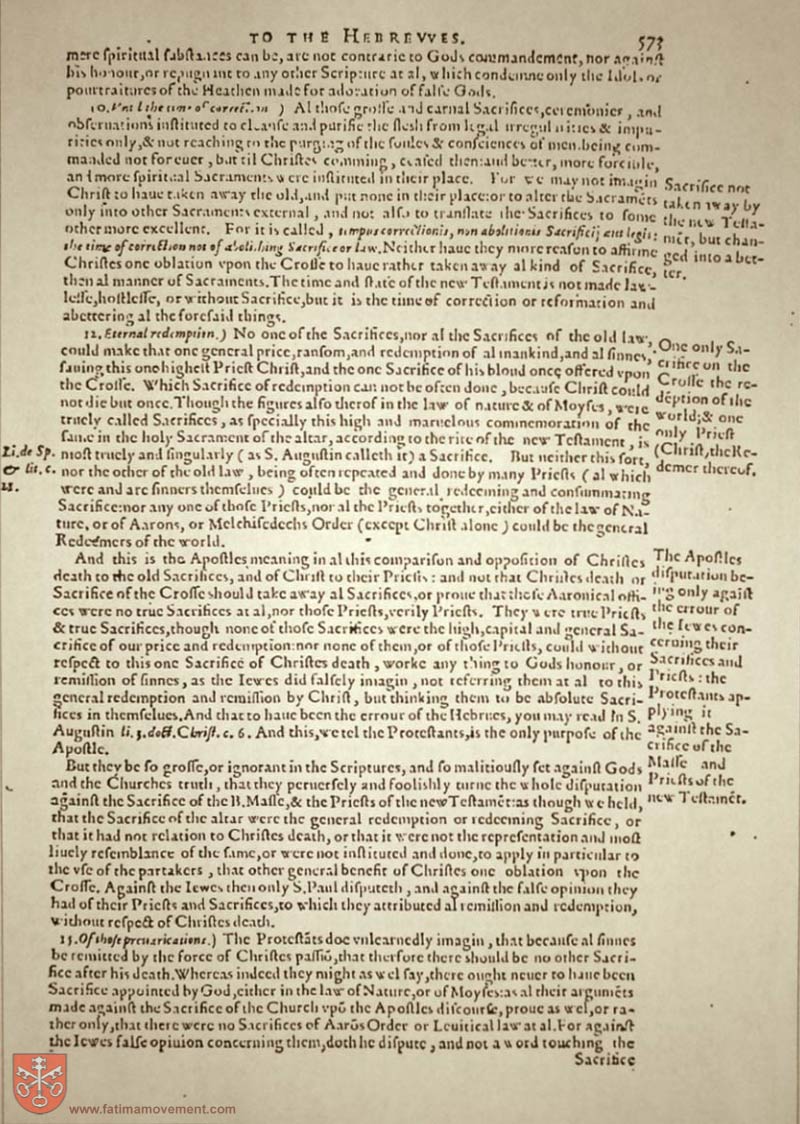 TO THE HEBREVVES. 573
mere ſpiritual ſubſtances can be, are not contrarie to Gods commandement, nor againſt
his honour, or repugnant to any other Scripture at al, which condemne only the Idols or
pourtraitures of the Heathen made for adoration of falſe Gods.
10. Vntil the time of correction ) Al thoſe groſſe and carnal Sacrifices, ceremonies, and
obſeruations inſtituted to cleanſe and purifie the fleſh from legal irregularities & impu-
rities only, & not reaching to the purging of the ſoules & conſciences of men, being com-
manded not foreuer, but til Chriſtes comming, ceaſed then: and better, more forcible,
and more ſpiritual Sacraments were inſtituted in their place. For we may not imagin
Chriſt to haue taken away the old, and put none in their place: or to alter the Sacramẽts
only into other Sacraments external, and not alſo to tranſlate the Sacrifices to ſome
other more excellent. For it is called, tempus correctionis, non abolitionis Sacrificij aut legis:
the time of correction not of aboliſhing Sacrifice or law. Neither haue they more reaſon to affirme
Chriſtes one oblation vpon the Croſſe to haue rather taken away al kind of Sacrifice,
then al manner of Sacraments. The time and ſtate of the new Teſtament is not made law-
leſſe, hoſtleſſe, or without Sacrifice, but it is the time of correction or reformation and
abettering al the foreſaid things.
Sacrifice not
taken away by
the new Teſta-
mẽt, but chan-
ged into a bet-
ter.
12. Eternal redemption.) No one of the Sacrifices, nor al the Sacrifices of the old law,
could make that one general price, ranſom, and redemption of al mankind, and al ſinnes,
ſauing this one higheſt Prieſt Chriſt, and the one Sacrifice of his bloud once offered vpon
the Croſſe. Which Sacrifice of redemption can not be often done, becauſe Chriſt could
not die but once. Though the figures alſo therof in the law of nature & of Moyſes, were
truely called Sacrifices, as ſpecially this high and maruelous commemoration of the
ſame in the holy Sacrament of the altar, according to the rite of the new Teſtament, is
moſt truely and ſingularly ( as S. Auguſtin calleth it) a Sacrifice. But neither this ſort,
nor the other of the old law, being often repeated and done by many Prieſts ( al which
were and are ſinners themſelues ) could be the general redeeming and conſummating
Sacrifice: nor any one of thoſe Prieſts, nor al the Prieſts together, either of the law of Na-
ture, or of Aarons, or Melchiſedechs Order (except Chriſt alone) could be the general
Redeemers of the world.
One only Sa-
crifice on the
Croſſe the re-
dẽption of the
world; & one
only Prieſt
(Chriſt, the Re-
demer thereof.
Li. de Sp.
& lit. c.
11.
And this is the Apoſtles meaning in al this compariſon and oppoſition of Chriſtes
death to the old Sacrifices, and of Chriſt to their Prieſts: and not that Chriſtes death or
Sacrifice of the Croſſe ſhould take away al Sacrifices, or proue that thoſe Aaronical offi-
ces were no true Sacrifices at al, nor thoſe Prieſts, verily Prieſts. They were true Prieſts
& true Sacrifices, though none of thoſe Sacrifices were the high, capital and general Sa-
crifice of our price and redemption: nor none of them, or of thoſe Prieſts, could without
reſpect to this one Sacrifice of Chriſtes death, worke any thing to Gods honour, or
remiſſion of ſinnes, as the Iewes did falſely imagin, not referring them at al to this
general redemption and remiſſion by Chriſt, but thinking them to be abſolute Sacri-
fices in themſelues. And that to haue been the errour of the Hebrues, you may read in S.
Auguſtin li. 3. doct. Chriſt. c. 6. And this, we tel the Proteſtants, is the only purpoſe of the
Apoſtle.
The Apoſtles
diſputation be-
ing only againſt
the errour of
the Iewes con-
cerning their
Sacrifices and
Prieſts: the
Proteſtants ap-
plying it
againſt the Sa-
crifice of the
Maſſe and
Prieſts of the
new Teſtamẽt.
But they be ſo groſſe, or ignorant in the Scriptures, and ſo malitiouſly ſet againſt Gods
and the Churches truth, that they peruerſely and fooliſhly turne the whole diſputation
againſt the Sacrifice of the B. Maſſe, & the Prieſts of the new Teſtamẽt: as though we held,
that the Sacrifice of the altar were the general redemption or redeeming Sacrifice, or
that it had not relation to Chriſtes death, or that it were not the repreſentation and moſt
liuely reſemblance of the ſame, or were not inſtituted and done, to apply in particular to
the vſe of the partakers, that other general benefit of Chriſtes one oblation vpon the
Croſſe. Againſt the Iewes then only S. Paul diſputeth, and againſt the falſe opinion they
had of their Prieſts and Sacrifices, to which they attributed al remiſſion and redemption,
without reſpect of Chriſtes death.
15. Of thoſe preuarications.) The Proteſtãts doe vnlearnedly imagin, that becauſe al ſinnes
be remitted by the force of Chriſtes paſſiõ, that therfore there ſhould be no other Sacri-
fice after his death. Whereas indeed they might as wel ſay, there ought neuer to haue been
Sacrifice appointed by God, either in the law of Nature, or of Moyſes: as al their argumẽts
made againſt the Sacrifice of the Church vpõ the Apoſtles diſcourſe, proue as wel, or ra-
ther only, that there were no Sacrifices of Aarõs Order or Leuitical law at al. For againſt
the Iewes falſe opinion concerning them, doth he diſpute, and not a word touching the
Sacrifice
www.fatimamovement.com